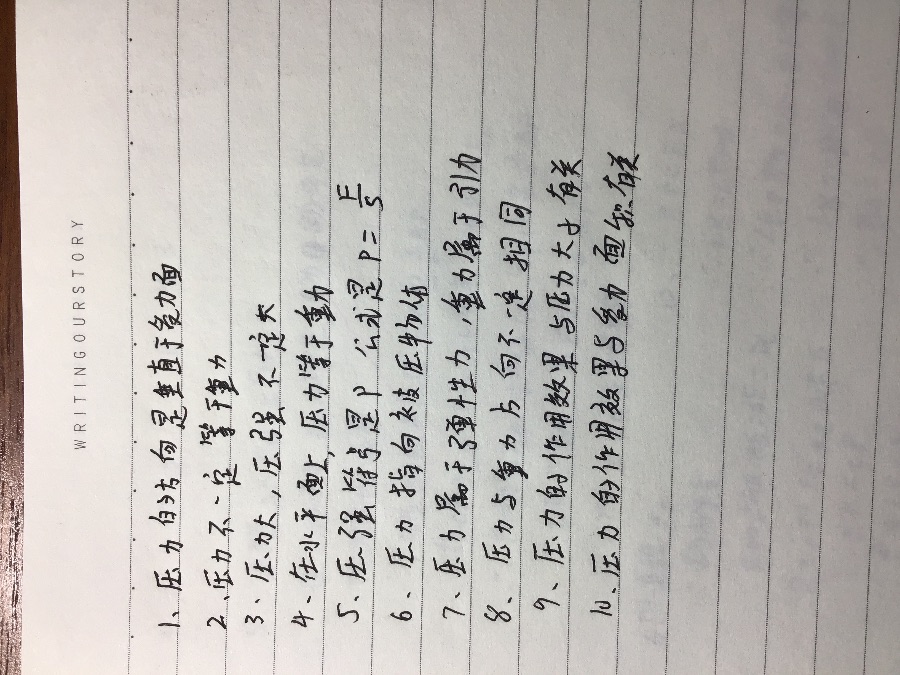 WRITINGOURSTORY
1、压力的方向是垂直于受力面
2、压力不一定等于重力
3、压力大,压强不一定大
4、在水平面上,压力等于重力
5、压强符号是P 公式是P=F/S
6、压力指向被压物体
7、压力属于弹性力,重力属于引力
8、压力与重力方向不一定相同
9、压力的作用效果与压力大小有关
10、压力的作用效果与受力面积有关